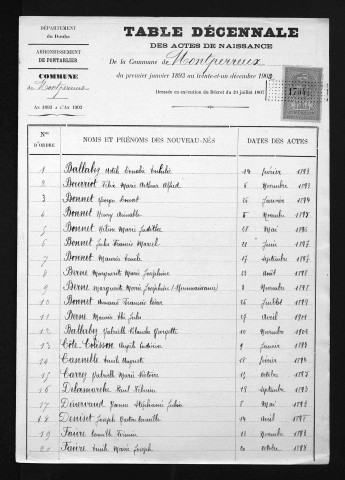 DÉPARTEMENT
du Doubs
ARRONDISSEMENT
DE PONTARLIER
COMMUNE
de Montperreux
AN 1893 à l'AN 1902
TABLE DÉCENNALE
DES ACTES DE NAISSANCE
De la Commune de Montperreux
du premier janvier 1893 au trente-et-un décembre 1902
Dressée en exécution du Décret du 20 juillet 1807
Nos D'ORDRE NOMS ET PRÉNOMS DES NOUVEAU-NÉS DATES DES ACTES
1 Ballaby 14 février 1893
2 Bouriot Félix Marie Arthur Alfred 6 Novembre 1893
3 Bonnet 26 Janvier 1894
4 Bonnet Henry Aimable 5 Novembre 1895
5 Bonnet Marie Judith 18 Mai 1896
6 Bonnet Jules Francis Marcel 21 Juin 1897
7 Bonnet Maurice 17 septembre 1897
8 Berne Marguerite Marie Joséphine 23 Août 1898
9 Berne Marguerite Marie Joséphine 8 Novembre 1898
10 Bonnet Armand Francis 26 Juillet 1899
11 Berne Jules 27 Avril 1901
12 Ballaby Gabrielle Blanche Georgette 10 Novembre 1902
13 Côte Colisson 9 Janvier 1893
14 Cannelle Emile Auguste 18 février 1894
15 Carry Gabrielle Marie Victoire 15 Octobre 1895
16 Delamarche Paul 18 septembre 1893
17 Jeanne Stéphanie 5 Mai 1893
18 Deniset Joseph Camille 14 Avril 1895
19 Faivre Camille Firmin 11 Novembre 1893
20 Faivre Emile Marie Joseph 20 Octobre 1894